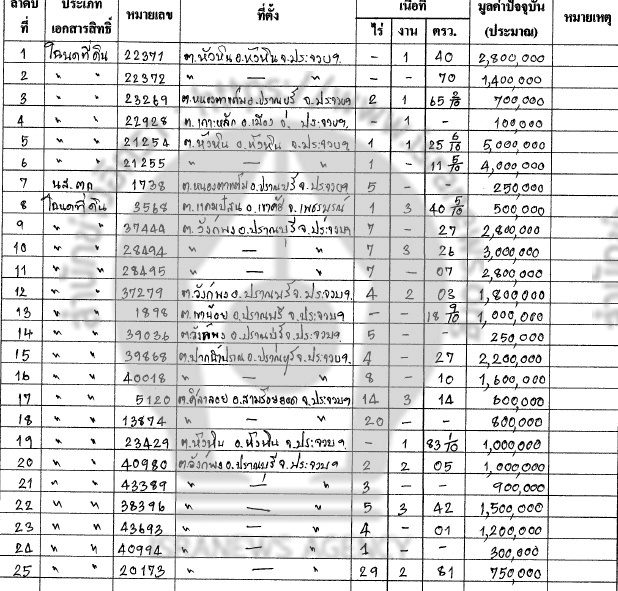 ลำดับ ประเภท หมายเลข ที่ตั้ง เนื้อที่ มูลค่าปัจจุบัน หมายเหตุ
ที่ เอกสารสิทธิ์ ไร่ งาน ตรว. (ประมาณ)
1 โฉนดที่ดิน 22371 ต.หัวหิน อ.หัวหิน จ.ประจวบฯ - 1 40 2,800,000
2 " " 22372 " — " - - 70 1,400,000
3 " " 23269 ต.หนองตาแต้ม อ.ปราณบุรี จ.ประจวบฯ 2 1 65 2/10 700,000
4 " " 22928 ต.เกาะหลัก อ.เมือง จ. ประจวบฯ - 1 - 100,000
5 " " 21254 ต.หัวหิน อ.หัวหิน จ.ประจวบฯ 1 1 25 6/10 5,000,000
6 " " 21255 " — " 1 - 11 5/10 4,000,000
7 นส.๓ก 1738 ต.หนองตาแต้ม อ.ปราณบุรี จ.ประจวบฯ 5 - - 250,000
8 โฉนดที่ดิน 3568 ต.แคมป์สน อ.เขาค้อ จ.เพชรบูรณ์ 1 3 40 5/10 500,000
9 " " 37444 ต.วังก์พง อ.ปราณบุรี จ.ประจวบฯ 7 - 27 2,800,000
10 " " 28494 " — " 7 3 26 3,000,000
11 " " 28495 " — " 7 - 07 2,800,000
12 " " 37279 ต.วังก์พง อ.ปราณบุรี จ.ประจวบฯ. 4 2 03 1,800,000
13 " " 1898 ต.เขาน้อย อ.ปราณบุรี จ.ประจวบฯ - - 18 9/10 1,000,000
14 " " 39036 ต.วังก์พง อ.ปราณบุรี จ.ประจวบฯ 5 - - 250,000
15 " " 39868 ต.ปากน้ำปราณ อ.ปราณบุรี จ.ประจวบฯ. 4 - 27 2,200,000
16 " " 40018 " — " 8 - 10 1,600,000
17 " " 5120 ต.ศิลาลอย อ.สามร้อยยอด จ.ประจวบฯ 14 3 14 600,000
18 " " 13874 " — " 20 - - 800,000
19 " " 23429 ต.หัวหิน อ.หัวหิน จ.ประจวบฯ - 1 83 1/10 1,000,000
20 " " 40980 ต.วังก์พง อ.ปราณบุรี จ.ประจวบฯ 2 2 05 1,000,000
21 " " 43389 " — " 3 - - 900,000
22 " " 38396 " — " 5 3 42 1,500,000
23 " " 43693 " — " 4 - 01 1,200,000
24 " " 40994 " — " 1 - - 300,000
25 " " 20173 " — " 29 2 81 750,000
ISRANEWS AGENCY